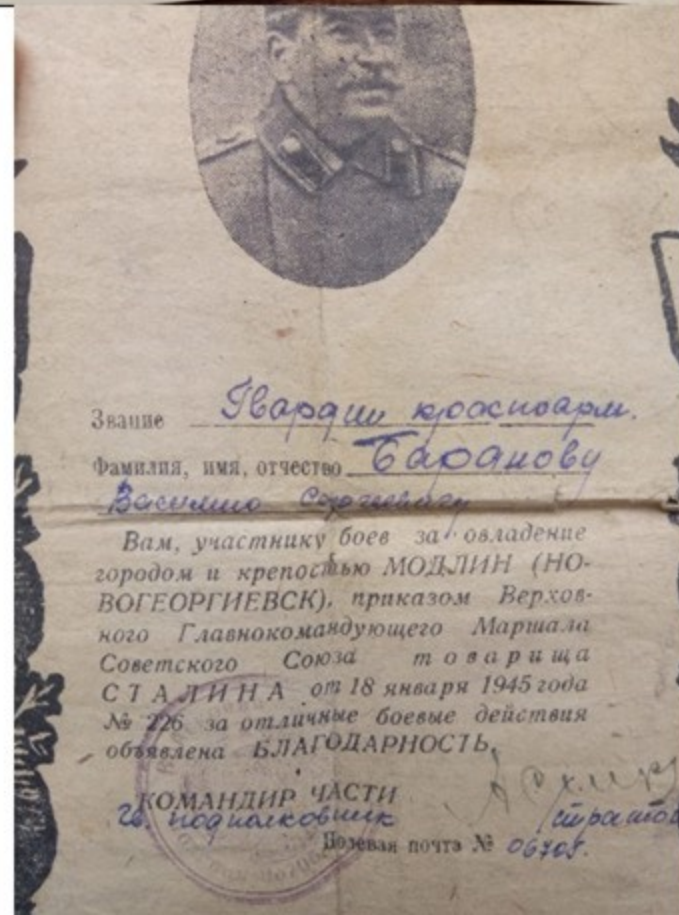 Звание Гвардии красноарм.
Фамилия, имя, отчество Баранову
Василию Сергеевичу
Вам, участнику боев за овладение
городом и крепостью МОДЛИН (НО-
ВОГЕОРГИЕВСК), приказом Верхов-
ного Главнокомандующего Маршала
Советского Союза товарища
СТАЛИНА от 18 января 1945 года
№ 226 за отличные боевые действия
объявлена БЛАГОДАРНОСТЬ.
КОМАНДИР ЧАСТИ
Гв. подполковник
Полевая почта № 06705.